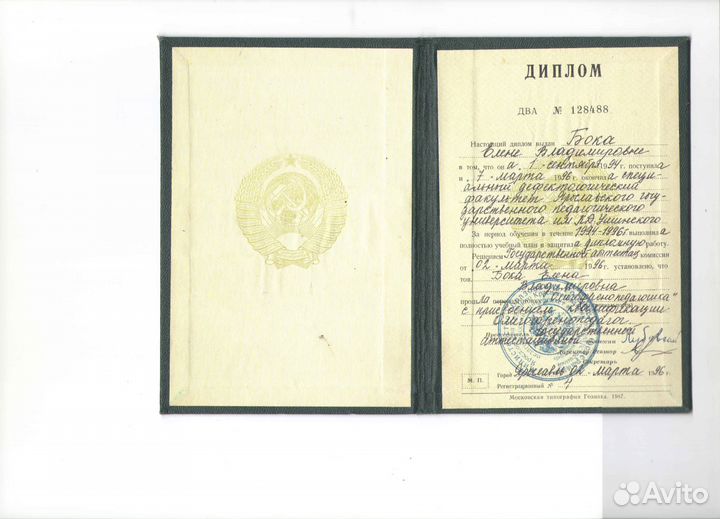 ДИПЛОМ
ДВА № 128488
Настоящий диплом выдан Бока
Елене Владимировне
в том, что он а 1 - сентября 1994 поступила
и 7 - марта 1996 окончила специ-
альный дефектологический
факультет Ярославского госу-
дарственного педагогического
университета им К.Д. Ушинского
За период обучения в течение 1994-1996 г выполнила
полностью учебный план и защитила дипломную работу.
Решением Государственной аттестац комиссии
от 02 - марта 1996 г. установлено, что
тов. Бока Елена
Владимировна
"Олигофренопедагогика"
с присвоением квалификации
Олигофренопедагог.
Государственной
Аттестационной комиссии
Директор
Секретарь
Город Ярославль 02 - марта 1996 г.
М. П.
Регистрационный № 4
Московская типография Гознака. 1987.
Avito